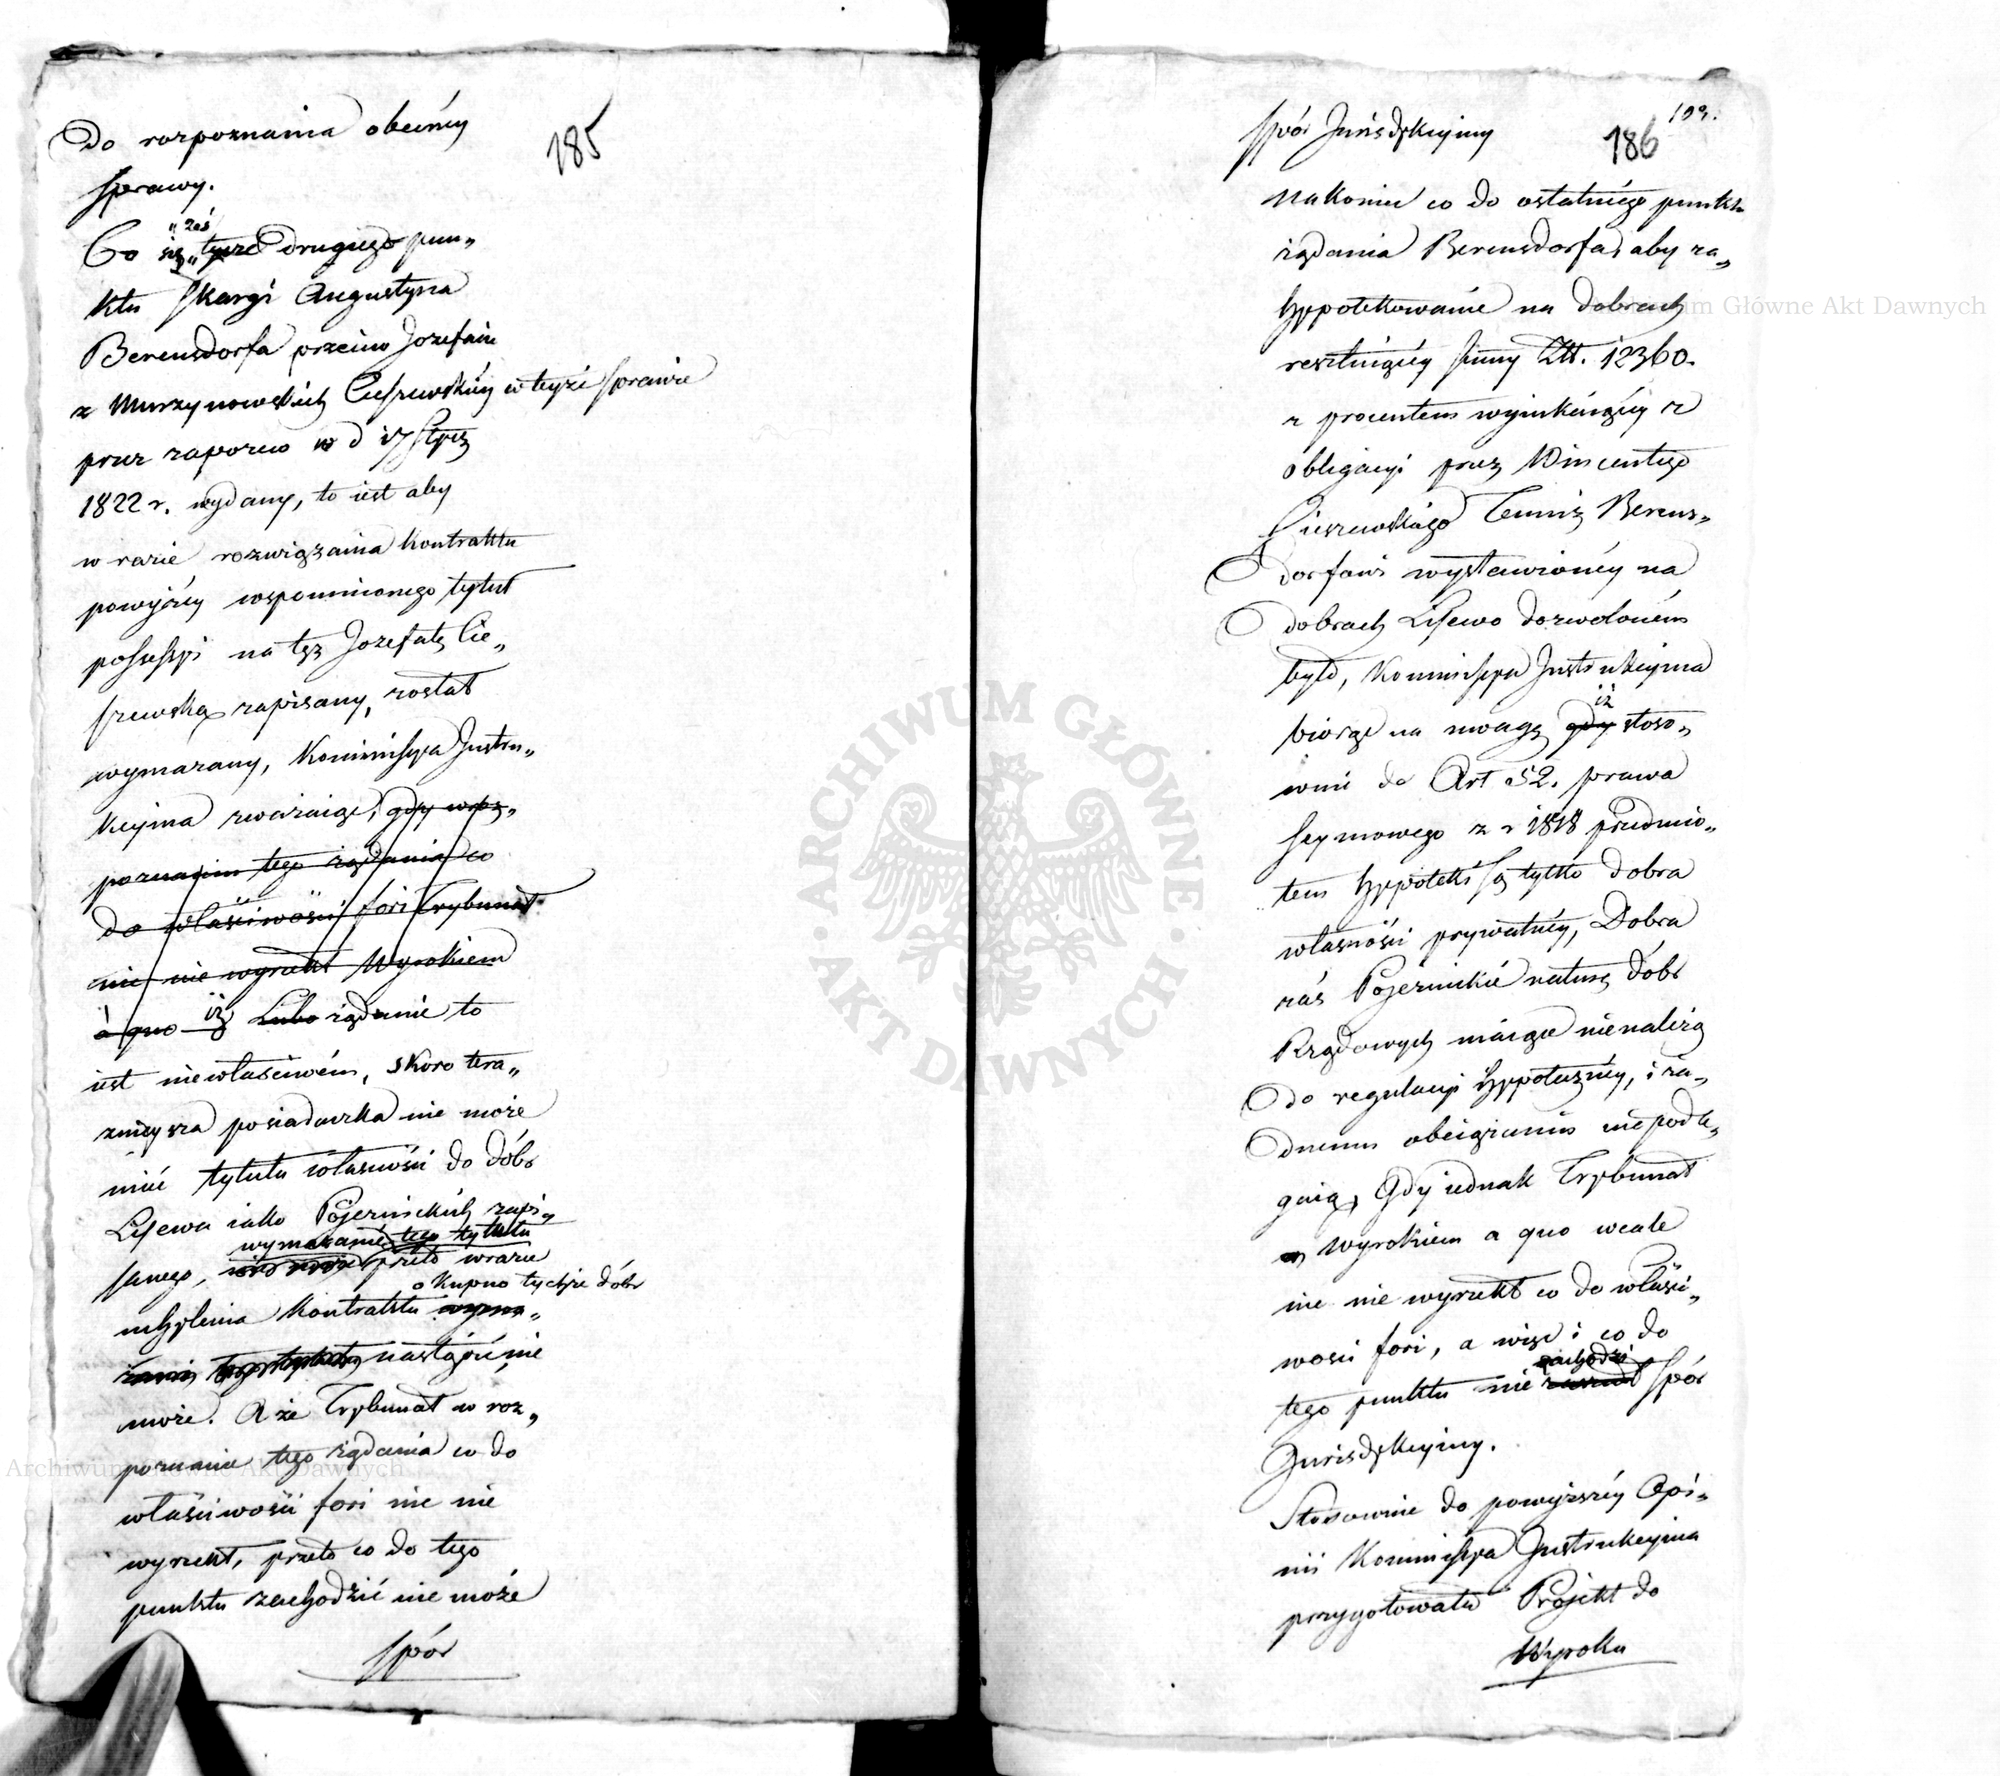 185
Do rozpoznania obecnéy
sprawy.
Co się zaś tycze drugiego pun„
ktu skargi Augustyna
Berensdorfa przeciw Jozefacie
z Murzynowskich Cieszewskiéy w teyże sprawie
przez zapozew w d 17 Stycz
1822 r. wydany, to iest aby
w razie rozwiązania kontraktu
powyżéy wspomnionego tytuł
possessyi na tęż Jozefatę Cie„
szewską zapisany, został
wymazany, Kommissya Instru„
kcyina zważaiąc, gdy wroz„
poznaniu tego żądania co
do właściwości fori Trybunał
nic nie wyrzekł Wyrokiem
à quo iż Lubo żądanie to
iest niewłaściwém, skoro tera„
znieysza posiadaczka nie może
mieć tytułu własności do dóbr
Lisewa iako Pojezuickich zapi„
wymazanie tego tytułu
sanego, przeto w razie
o kupno tychże dóbr
uchylenia kontraktu wyma„
zanie nastąpić nie
może. A że Trybunał w roz„
poznanie tego żądania co do
właściwości fori nic nie
wyrzekł, przeto co do tego
punktu zachodzić nie może
spór
193.
186
spór Jurisdykcyiny
Nakoniec co do ostatniego punktu
żądania Berensdorfa, aby za„
hypotekowanie na dobrach
resztuiącéy summy Złt. 12360.
z procentem wynikaiącéy z
obligacyi przez Wincentego
Cieszewskiego Temuż Berens„
dorfowi wystawionéy na
dobrach Lisewo dozwoloném
było, Kommissya Instrukcyina
biorąc na uwagę gdy iż stoso„
wnie do Art 52. prawa
Seymowego z r 1818 przedmio„
tem hypoteki są tylko dobra
własności prywatnéy, Dobra
zaś Pojezuickie naturę dóbr
Rządowych maiące nienależą
do regulacyi hypoteczney, i ża„
dnemu obciążeniu nie podle„
gaią, Gdy iednak Trybunał
Wyrokiem a quo wcale
nic nie wyrzekł co do właści„
wości fori, a więc i co do
tego punktu nie zachodzi spór
Jurisdykcyiny.
Stosownie do powyższéy Opi„
nii Kommissya Instrukcyina
przygotowała Projekt do
Wyroku
ARCHIWUM GŁÓWNE AKT DAWNYCH
Archiwum Główne Akt Dawnych
Archiwum Główne Akt Dawnych